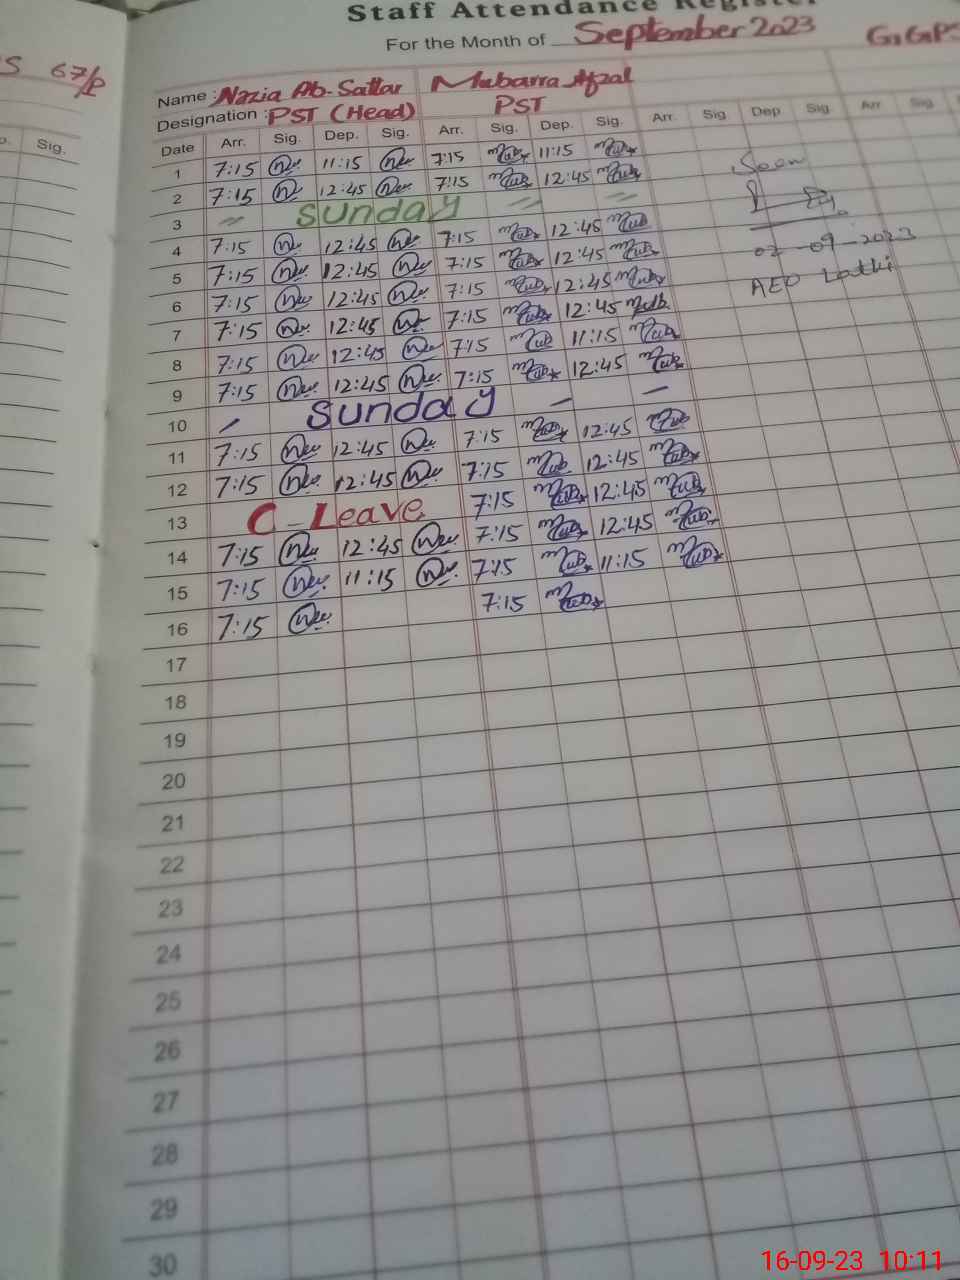 Staff Attendance Register
For the Month of September 2023 G.G.P.S
S 67/P
Name : Nazia Ab. Sattar Mubarra Afzal
Designation : PST (Head) PST
Sig. Date Arr. Sig. Dep. Sig. Arr. Sig. Dep. Sig. Arr. Sig. Dep Sig. Arr Sig.
1 7:15 11:15 7:15 11:15
2 7:15 12:45 7:15 12:45 Seen
3 Sunday
4 7:15 12:45 7:15 12:45
5 7:15 12:45 7:15 12:45 -09-2023
6 7:15 12:45 7:15 12:45 AEO
7 7:15 12:45 7:15 12:45
8 7:15 12:45 7:15 11:15
9 7:15 12:45 7:15 12:45
10 Sunday
11 7:15 12:45 7:15 12:45
12 7:15 12:45 7:15 12:45
13 C-Leave 7:15 12:45
14 7:15 12:45 7:15 12:45
15 7:15 11:15 7:15 11:15
16 7:15 7:15
17
18
19
20
21
22
23
24
25
26
27
28
29
30
16-09-23 10:11